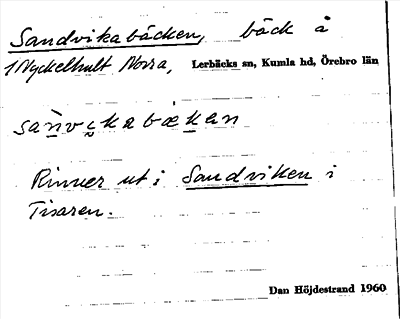 Sandvikabäcken, bäck å
1 Nyckelhult Norra, Lerbäcks sn, Kumla hd, Örebro län
sanvikabäkän
Rinner ut i Sandviken i
Tisaren.
Dan Höjdestrand 1960